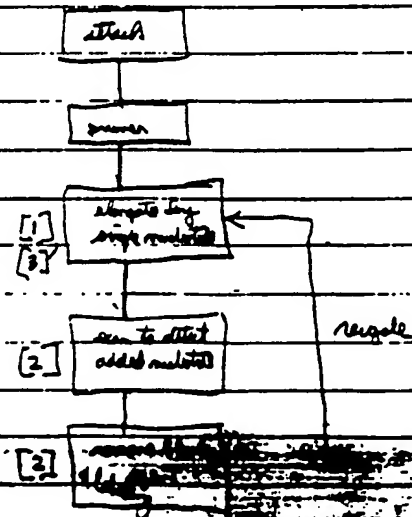 attach
primer
elongate by
single nucleotide
[1]
[3]
scan to detect
added nucleotide
[2]
recycle
[2]
remove